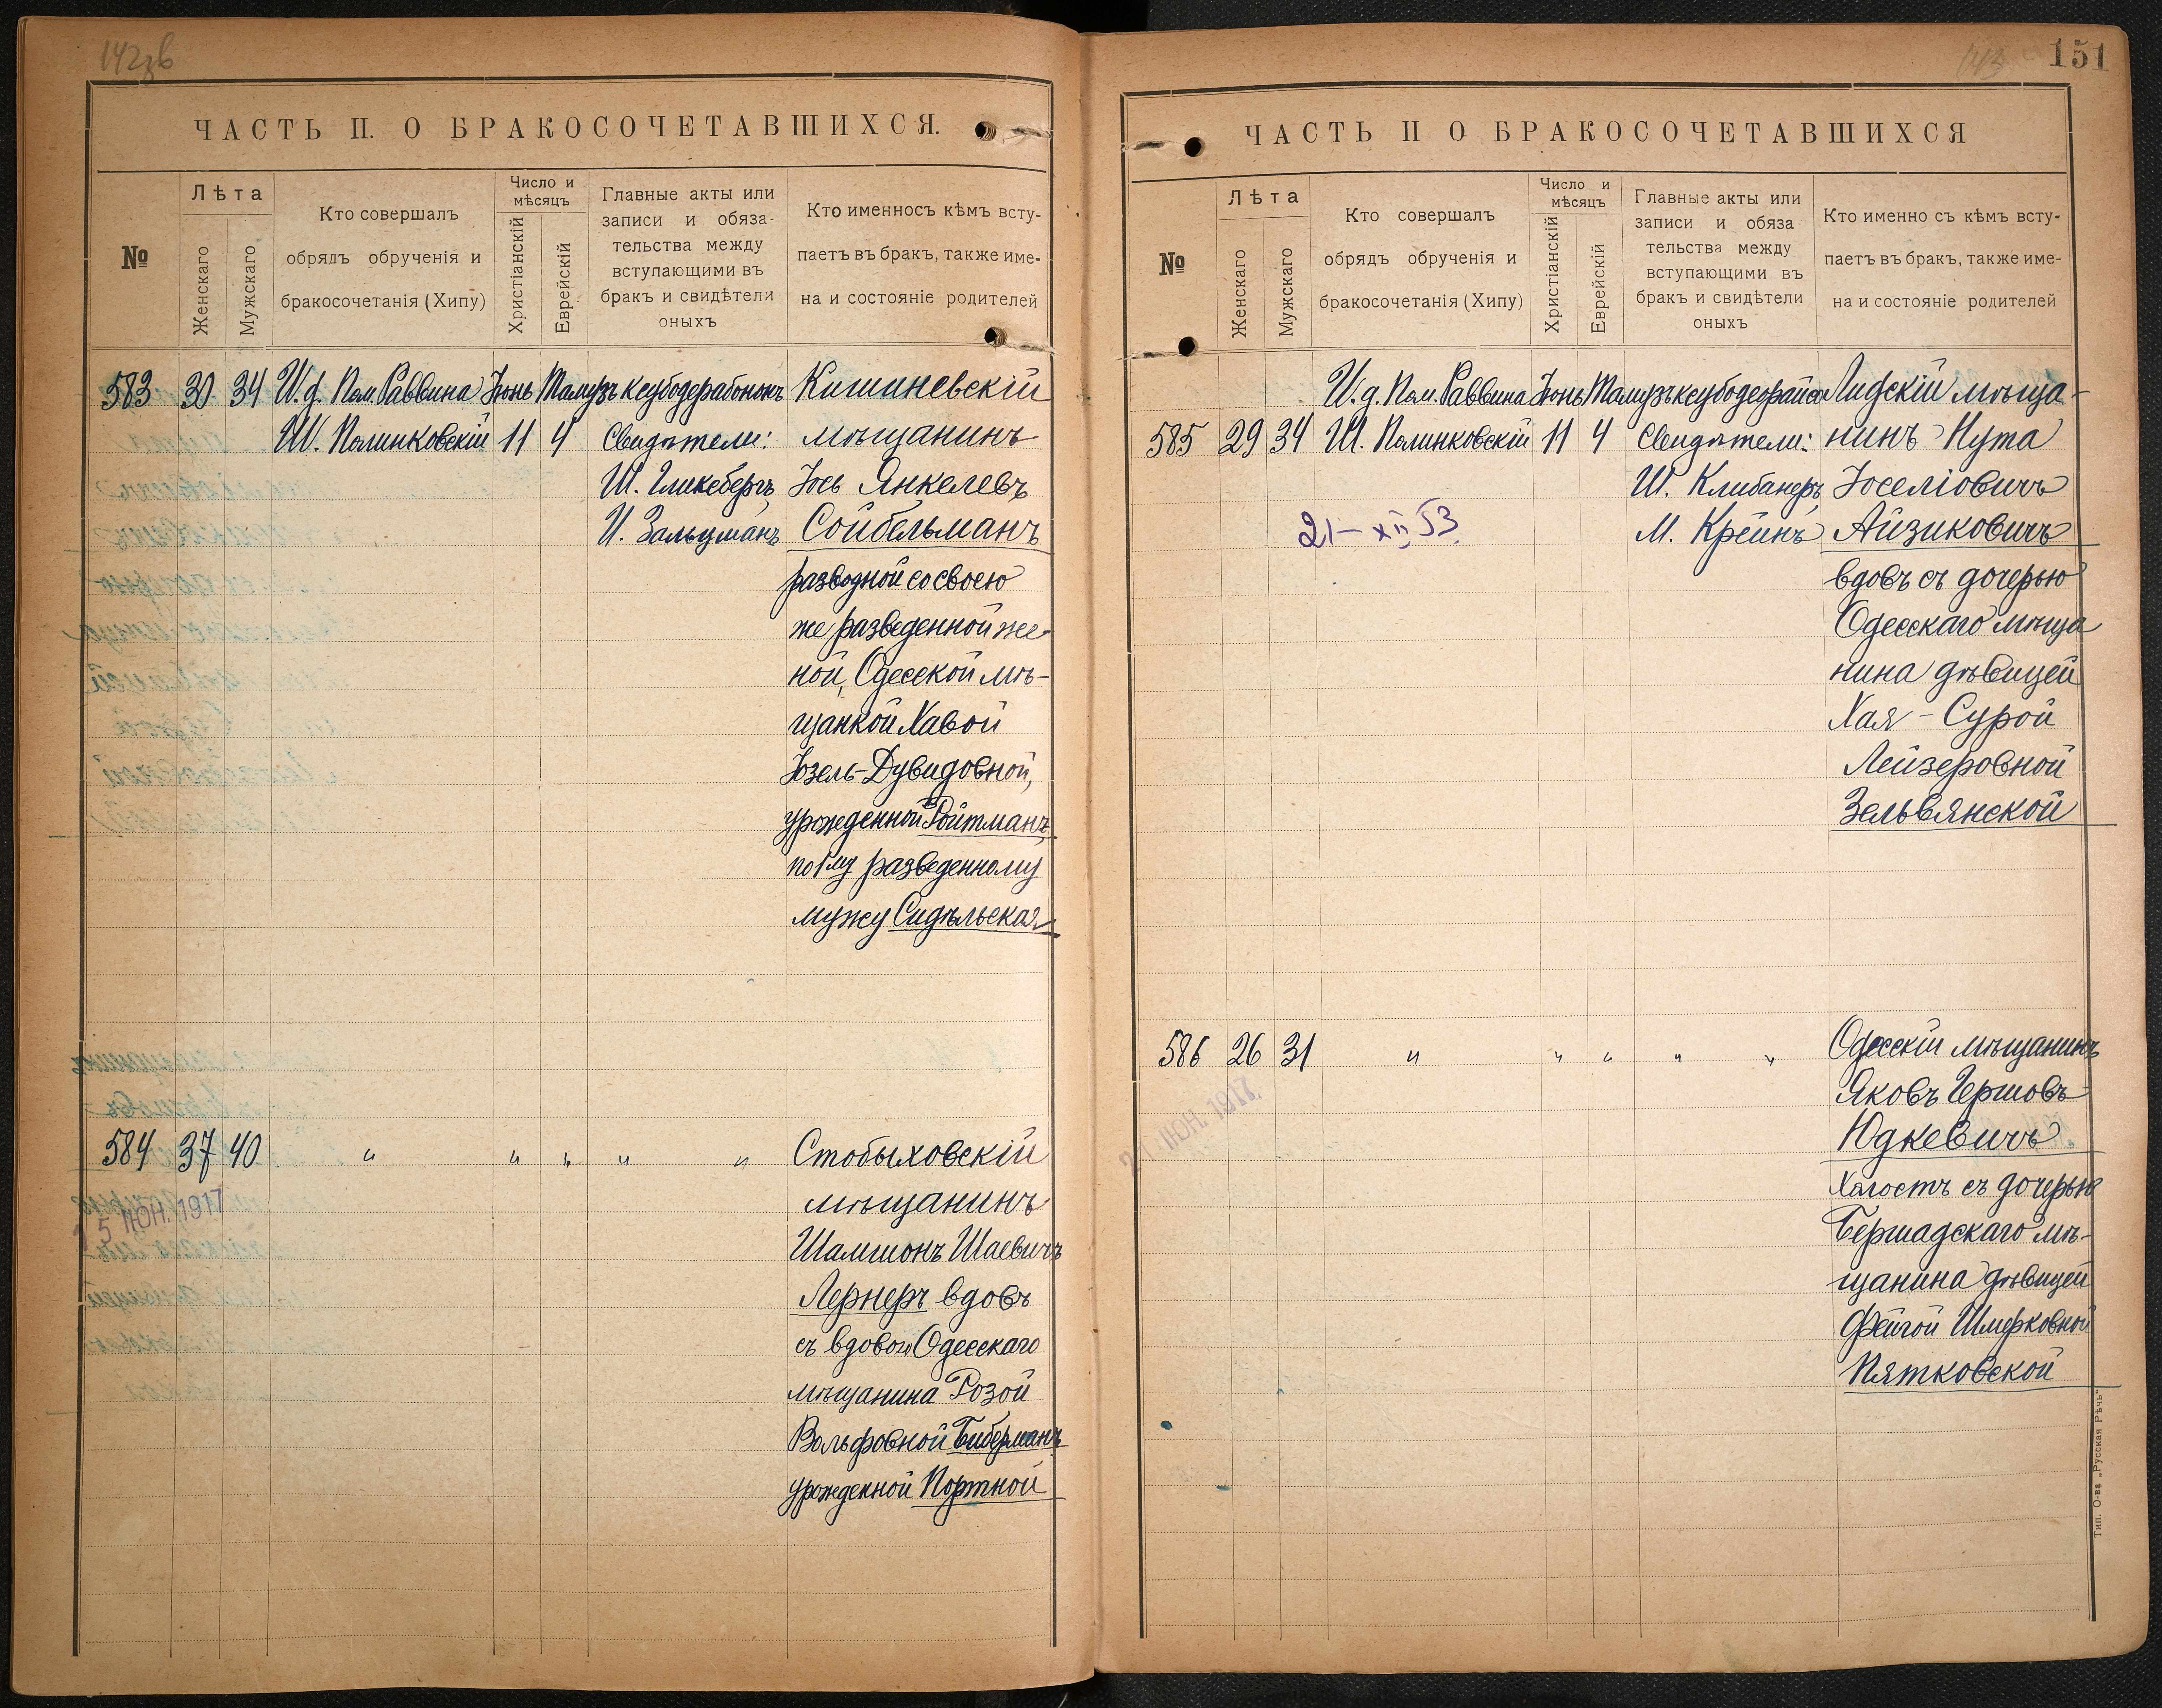 142зв
ЧАСТЬ II. О БРАКОСОЧЕТАВШИХСЯ.
№
Лѣта
Женскаго
Мужскаго
Кто совершалъ
обрядъ обрученія и
бракосочетанія (Хипу)
Число и
мѣсяцъ
Христіанскій
Еврейскій
Главные акты или
записи и обяза-
тельства между
вступающими въ
бракъ и свидѣтели
оныхъ
Кто именносъ кѣмъ всту-
паетъ въ бракъ, также име-
на и состояніе родителей
583 30 34 И.д. Пом. Раввина Іюнь Тамузъ Кишиневскій
Ш. Полинковскій 11 4 Свидѣтели: мѣщанинъ
Ш. Гликсбергъ Іось Янкелевъ
И. Зальцманъ Сойбельманъ
разводной со своею
же разведенной же-
ной, Одесской мѣ-
щанкой Хавой
Іозель-Дувидовной,
урожденной Ройтманъ,
по 1му разведенному
мужу Сидѣльская
584 37 40 " " " " " Стобыховскій
мѣщанинъ
5 ІЮН. 1917
Шамшонъ Шаевичъ
Лернеръ вдовъ
съ вдовой Одесскаго
мѣщанина Розой
Вольфовной Биберманъ
урожденной Портной
143
151
ЧАСТЬ II О БРАКОСОЧЕТАВШИХСЯ
№
Лѣта
Женскаго
Мужскаго
Кто совершалъ
обрядъ обрученія и
бракосочетанія (Хипу)
Число и
мѣсяцъ
Христіанскій
Еврейскій
Главные акты или
записи и обяза
тельства между
вступающими въ
бракъ и свидѣтели
оныхъ
Кто именно съ кѣмъ всту-
паетъ въ бракъ, также име-
на и состояніе родителей
И.д. Пом. Раввина Іюнь Тамузъ Лидскій мѣща-
585 29 34 Ш. Полинковскій 11 4 Свидѣтели: нинъ Нута
Ш. Клибанеръ Іоселіовичъ
21-XII 53 М. Крейнъ Айзиковичъ
вдовъ съ дочерью
Одесскаго мѣща
нина дѣвицей
Хая-Сурой
Лейзеровной
Зельвянской
586 26 31 " " " " " Одесскій мѣщанинъ
Яковъ Гершовъ
ІЮН. 1917.
Юдкевичъ
холостъ съ дочерью
Бершадскаго мѣ-
щанина дѣвицей
Фейгой Шмерковной
Пятковской
Тип. О-ва „Русская Рѣчь"